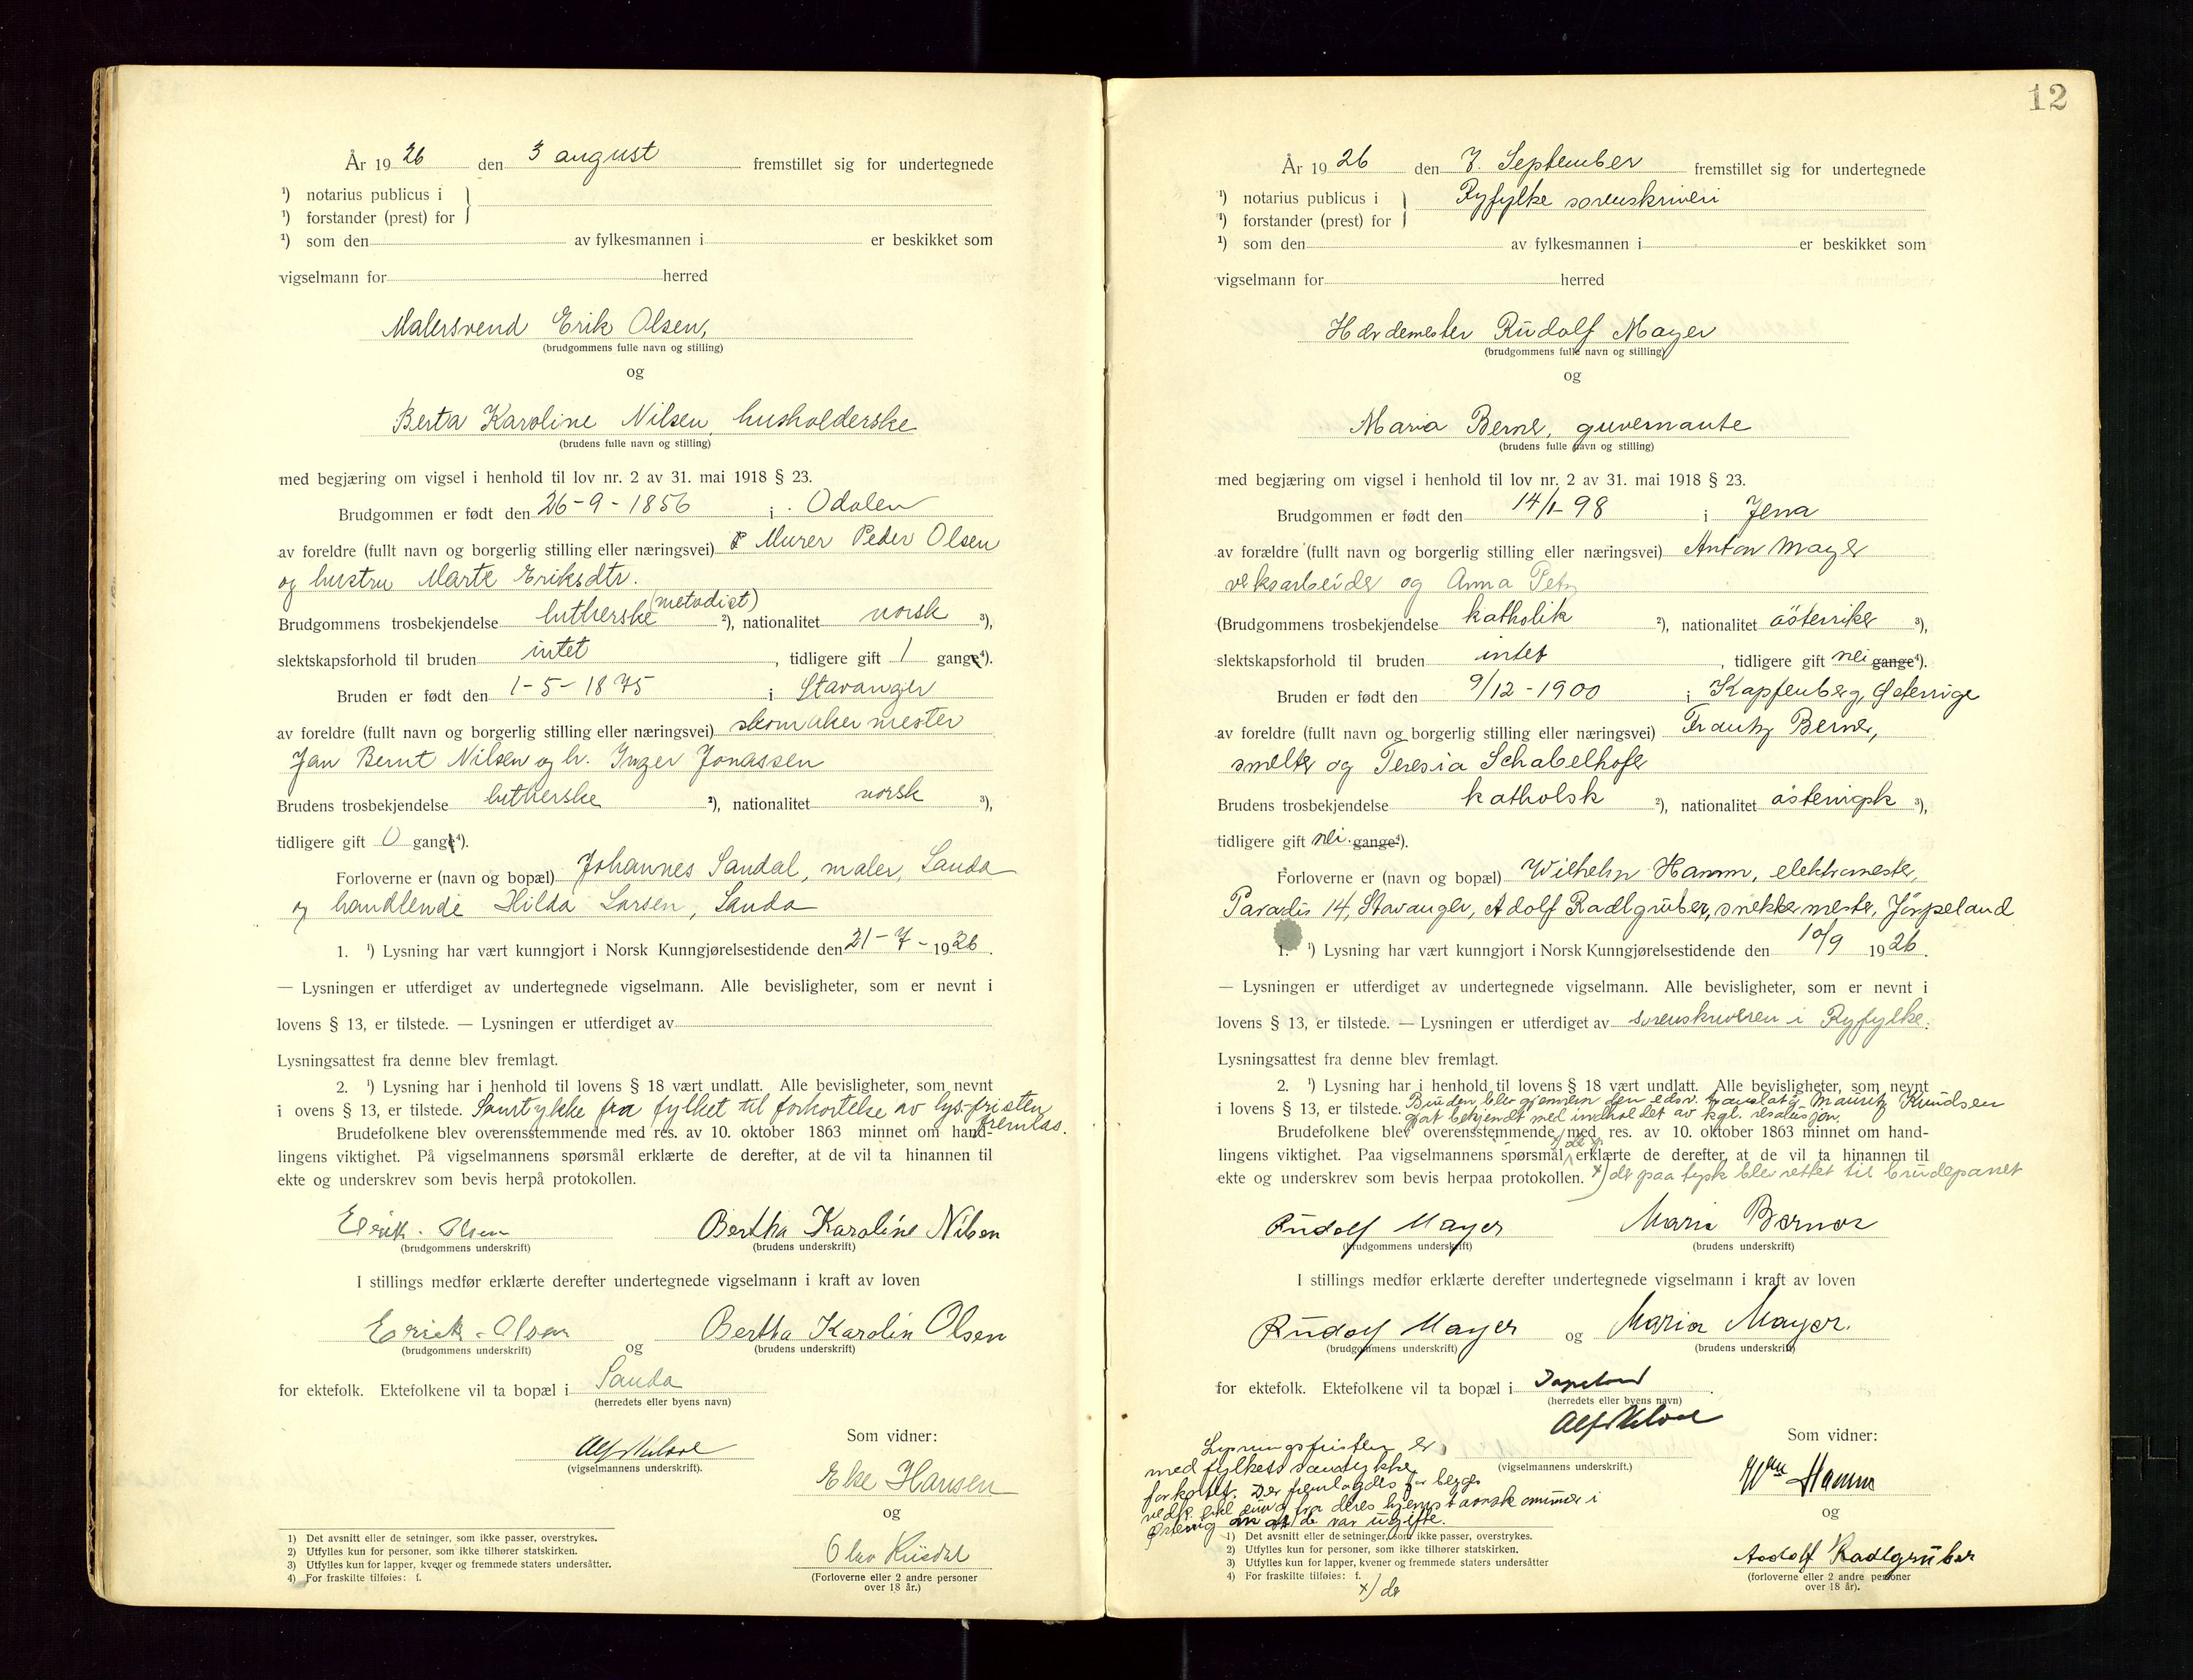 År 1926 den 3 august fremstillet sig for undertegnede
¹) notarius publicus i
¹) forstander (prest) for
¹) som den av fylkesmannen i er beskikket som
vigselmann for herred
Malersvend Erik Olsen,
(brudgommens fulle navn og stilling)
og
Berta Karoline Nilsen, husholderske
(brudens fulle navn og stilling)
med begjæring om vigsel i henhold til lov nr. 2 av 31. mai 1918 § 23.
Brudgommen er født den 26-9-1856 i Odalen
av foreldre (fullt navn og borgerlig stilling eller næringsvei) Murer Peder Olsen
og hustru Marte Eriksdtr.
Brudgommens trosbekjendelse lutherske (metodist) ²), nationalitet norsk ³),
slektskapsforhold til bruden intet, tidligere gift 1 gange⁴).
Bruden er født den 1-5-1875 i Stavanger
av foreldre (fullt navn og borgerlig stilling eller næringsvei) skomakermester
Jan Bernt Nilsen og h. Inger Jonassen
Brudens trosbekjendelse lutherske ²), nationalitet norsk ³),
tidligere gift 0 gange⁴).
Forloverne er (navn og bopæl) Johannes Sandal, maler, Sauda
og handlende Hilda Larsen, Sauda
1. ¹) Lysning har vært kunngjort i Norsk Kunngjørelsestidende den 21-7-1926.
— Lysningen er utferdiget av undertegnede vigselmann. Alle bevisligheter, som er nevnt i
lovens § 13, er tilstede. — Lysningen er utferdiget av
Lysningsattest fra denne blev fremlagt.
2. ¹) Lysning har i henhold til lovens § 18 vært undlatt. Alle bevisligheter, som nevnt
i ovens § 13, er tilstede. Samtykke fra fylket til forkortelse av lys.fristen
fremlas.
Brudefolkene blev overensstemmende med res. av 10. oktober 1863 minnet om hand-
lingens viktighet. På vigselmannens spørsmål erklærte de derefter, at de vil ta hinannen til
ekte og underskrev som bevis herpå protokollen.
Erik Olsen Bertha Karoline Nilsen
(brudgommens underskrift) (brudens underskrift)
I stillings medfør erklærte derefter undertegnede vigselmann i kraft av loven
Erik Olsen og Bertha Karolin Olsen
(brudgommens underskrift) (brudens underskrift)
for ektefolk. Ektefolkene vil ta bopæl i Sauda
(herredets eller byens navn)
Som vidner:
(vigselmannens underskrift).
Hansen
og
Olav
(Forloverne eller 2 andre personer
over 18 år.)
1) Det avsnitt eller de setninger, som ikke passer, overstrykes.
2) Utfylles kun for personer, som ikke tilhører statskirken.
3) Utfylles kun for lapper, kvener og fremmede staters undersåtter.
4) For fraskilte tilføies: f.
12
År 1926 den 7. September fremstillet sig for undertegnede
¹) notarius publicus i Ryfylke sorenskriveri
¹) forstander (prest) for
¹) som den av fylkesmannen i er beskikket som
vigselmann for herred
Herdemester Rudolf Mayer
(brudgommens fulle navn og stilling)
og
Maria Berner, guvernante
(brudens fulle navn og stilling)
med begjæring om vigsel i henhold til lov nr. 2 av 31. mai 1918 § 23.
Brudgommen er født den 14/1-98 i Jena
av forældre (fullt navn og borgerlig stilling eller næringsvei) Anton Mayer
verksarbeider og Anna Petz
(Brudgommens trosbekjendelse katholik ²), nationalitet østerriker ³),
slektskapsforhold til bruden intet, tidligere gift nei gange⁴).
Bruden er født den 9/12-1900 i Kapfenberg, Østerrige
av foreldre (fullt navn og borgerlig stilling eller næringsvei) Frantz Berner,
smelter og Teresia Schabelhofer
Brudens trosbekjendelse katholsk ²), nationalitet østerrigsk ³),
tidligere gift nei. gange⁴).
Forloverne er (navn og bopæl) Wilhelm Hamm, elektromester,
Paradis 14, Stavanger, Adolf Radlgruber, snekkermester, Jörpeland
1. ¹) Lysning har vært kunngjort i Norsk Kunngjørelsestidende den 10/9 1926.
— Lysningen er utferdiget av undertegnede vigselmann. Alle bevisligheter, som er nevnt i
lovens § 13, er tilstede. — Lysningen er utferdiget av sorenskriveren i Ryfylke.
Lysningsattest fra denne blev fremlagt.
2. ¹) Lysning har i henhold til lovens § 18 vært undlatt. Alle bevisligheter, som nevnt
i lovens § 13, er tilstede. Bruden blev gjennem den edsv. translatør Mauritz Knudsen
gjort bekjendt med indholdet av kgl. resolusjon.
Brudefolkene blev overensstemmende med res. av 10. oktober 1863 minnet om hand-
lingens viktighet. Paa vigselmannens spørsmål x) erklærte de derefter, at de vil ta hinannen til
ekte og underskrev som bevis herpaa protokollen. x) der paa tysk blev rettet til brudeparret
Rudolf Mayer Maria Berner
(brudgommens underskrift) (brudens underskrift)
I stillings medfør erklærte derefter undertegnede vigselmann i kraft av loven
Rudolf Mayer og Maria Mayer.
(brudgommens underskrift) (brudens underskrift)
for ektefolk. Ektefolkene vil ta bopæl i
(herredets eller byens navn)
Som vidner:
(vigselmannens underskrift.)
Lysningsfristen er
med fylkets samtykke
forkortet. Der fremlagdes for begges
vedk. fra deres hjemstavnskommune i
Østerrig at de var ugifte.
Hamm
og
Adolf Radlgruber
(forloverne eller 2 andre personer
over 18 år).
1) Det avsnitt eller de setninger, som ikke passer, overstrykes.
2) Utfylles kun for personer, som ikke tilhører statskirken.
3) Utfylles kun for lapper, kvener og fremmede staters undersåtter
4) For fraskilte tilføies: f.
x) der